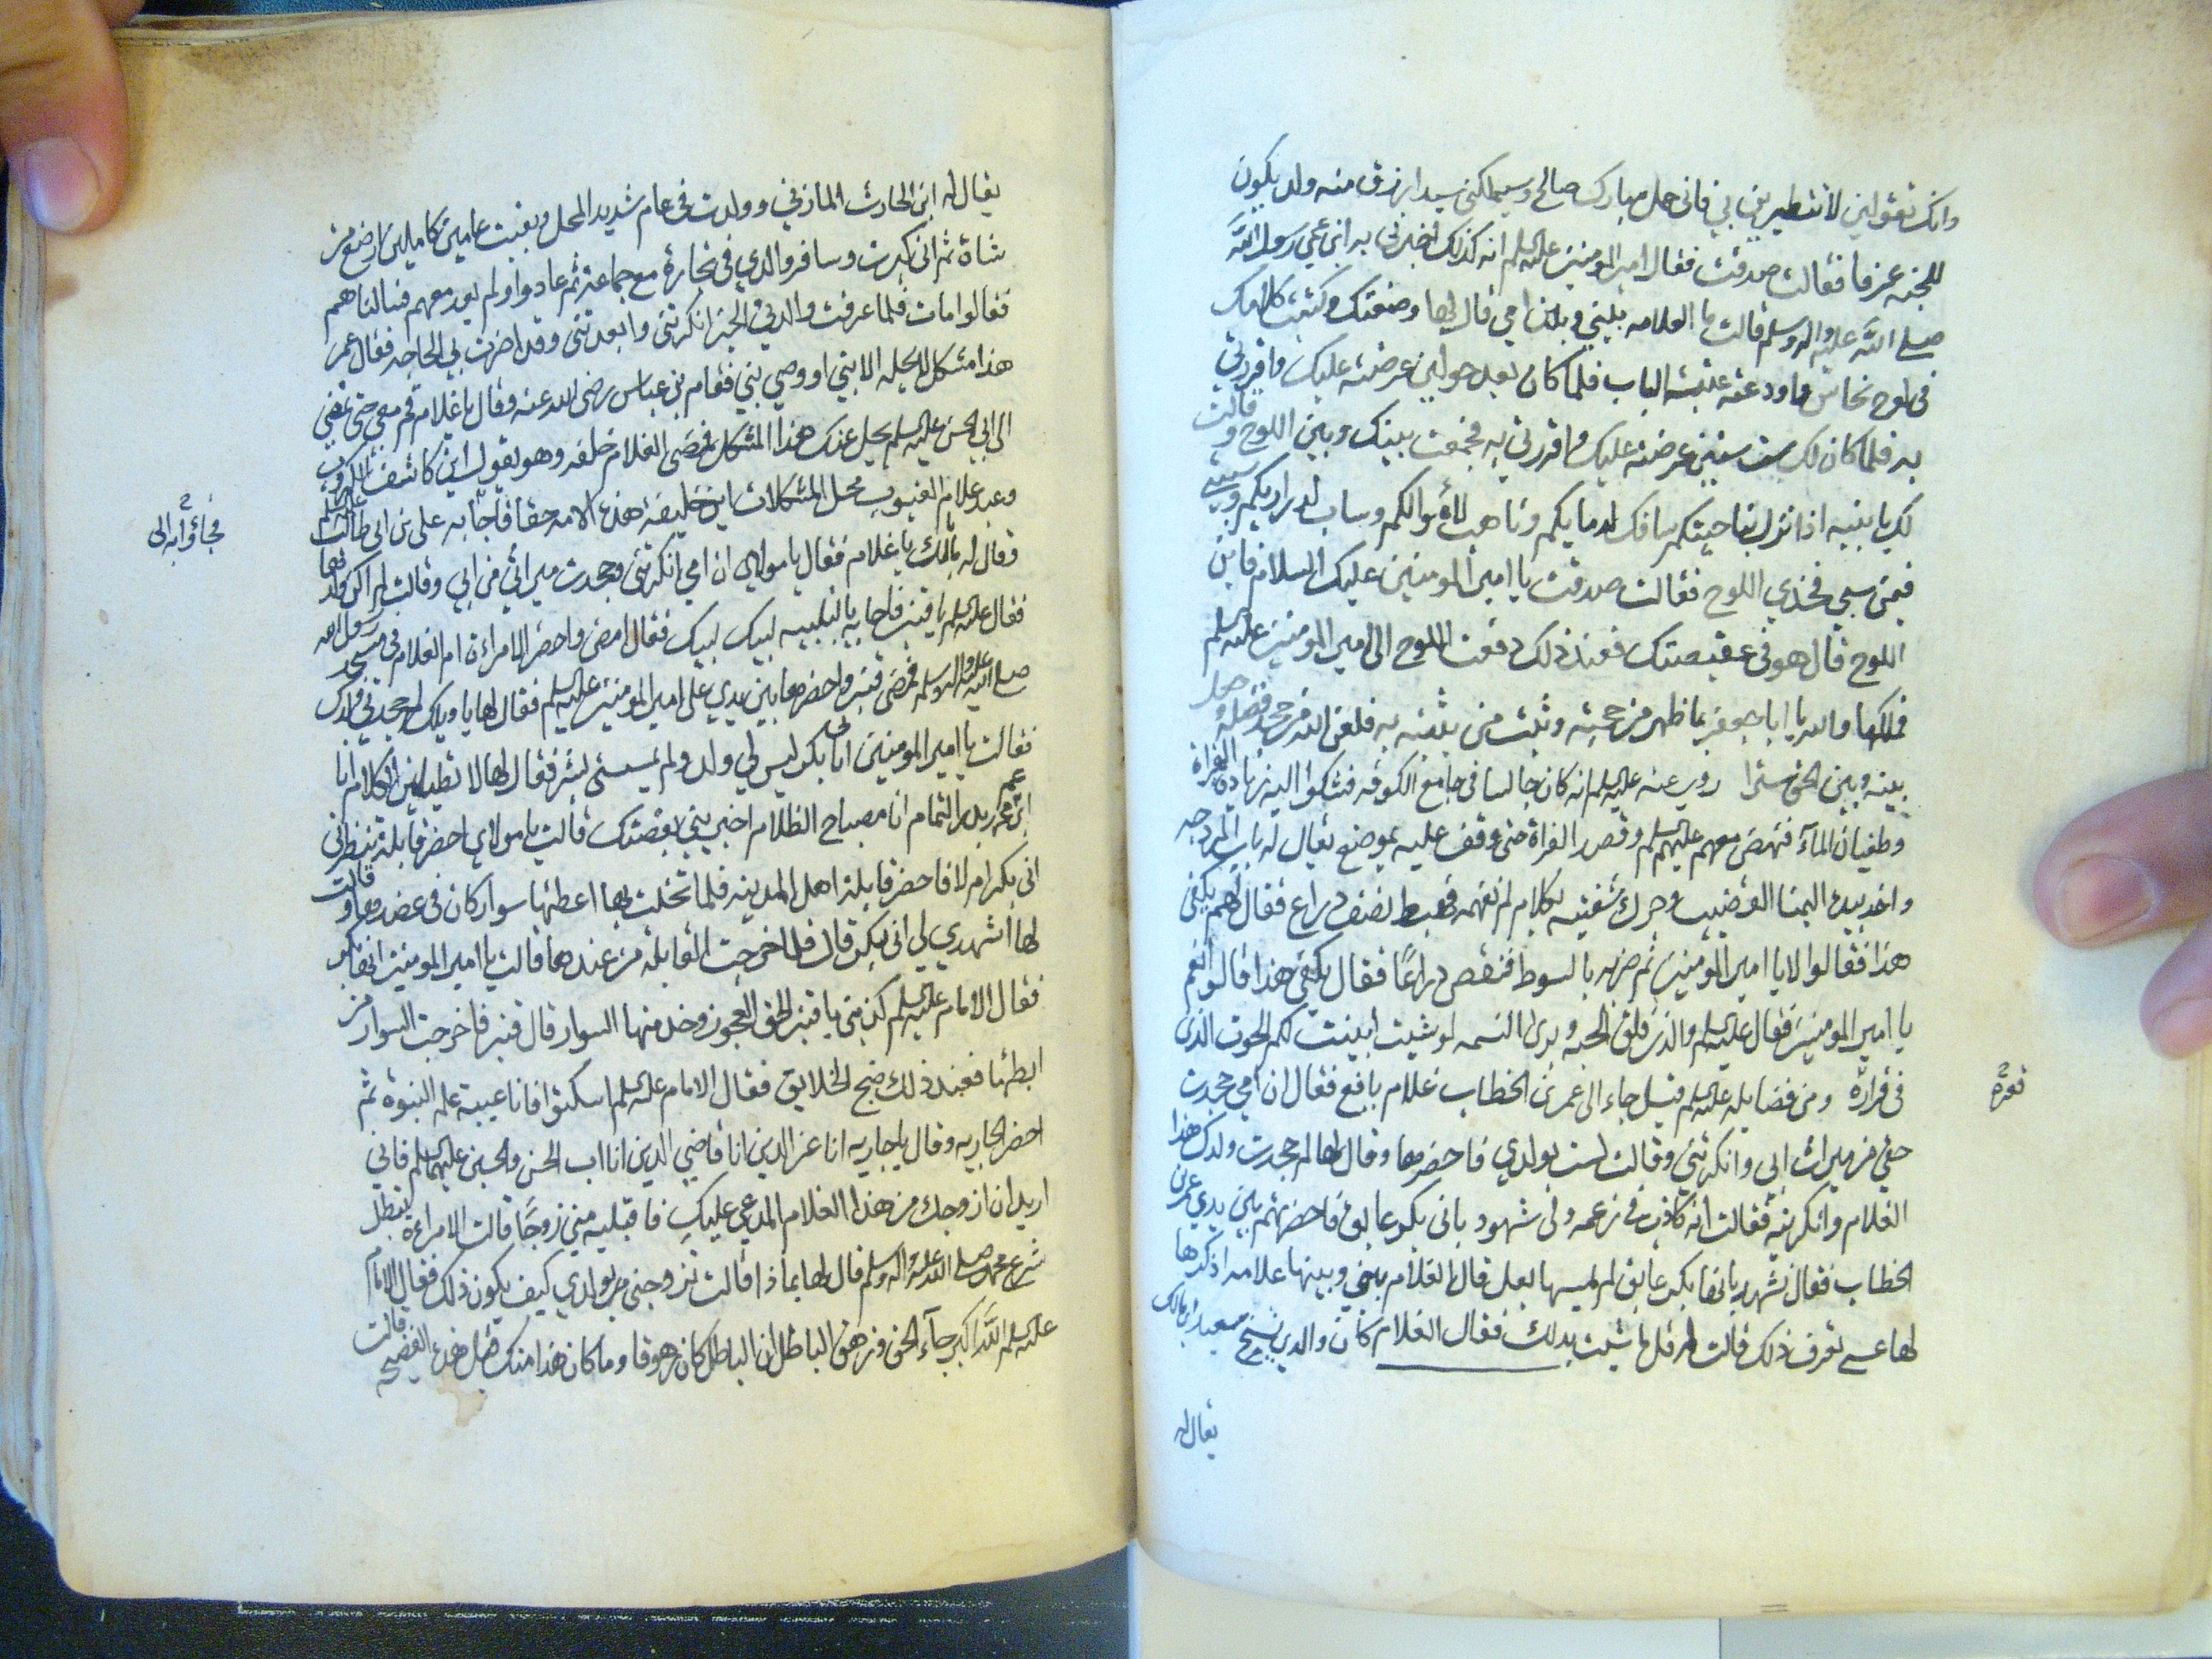 وانك تقولين لا تتطيرين بي فاني حمل مبارك صالح وسيملكني سيد ارزق منه ولد يكون
للحنفية عزفا فقالت صدقت فقال امير المومنين عليه السلم انه كذلك اخبرني به ابن عمي رسول الله
صلى الله عليه واله وسلم قالت ما العلامه بيني وبين امي قال لها وضعتك وكتبت كلامك
في لوح نحاس واودعته عتبة الباب فلما كان بعد حولين عرضته عليك فاقررتي
به فلما كان لك ست سنين عرضته عليك واقررتي به فجمعت بينك وبين اللوح وقالت
لك يا بنيه اذا نزل بساحيتكم سافك لدمايكم وناهب لاموالكم وساب لدراريكم وسبيتي
فيمن سبي فخذي اللوح فقالت صدقت يا امير المومنين عليك السلام فاين
اللوح قال هو في عقيصتك فعند ذلك دفعت اللوح الى امير المومنين عليه السلم
فملكها والله يا ابا جعفر بما ظهر من حجته وثبت من بينته به فلعن الله من جحد فضله وجعل
بينه وبين الحق سترا روي عنه عليه السلم انه كان جالسا في جامع الكوفه فشكوا اليه زيادة الفراة
وطغيان المآء فنهض معهم عليه السلم وقصد الفراة حتى وقف عليه بموضع يقال له باب المروحه
واخذ بيده اليمنا القضيب وحرك شفتيه بكلام لم نفهمه فهبط نصف دراع فقال لهم يكفي
هذا فقالوا لا يا امير المومنين ثم ضربه بالسوط فنقص دراعًا فقال يكفي هذا قالوا نعم
يا امير المومنين فقال عليه السلم والذي فلق الحبه وبرى النسمه لو شيت ابينت لكم الحوت الذي
في قراره ومن فضايله عليه السلم قيل جاء الى عمر بن الخطاب غلام يافع فقال ان امي جحدت
حقي من ميراث ابي وانكرتني وقالت لست بولدي فاحضرها وقال لها لم جحدت ولدك هذا
الغلام وانكرتيه فقالت انه كاذب في زعمه ولي شهود باني بكر عابق فاحضرتهم بين يدي عمر بن
الخطاب فقال نشهد بانها بكر عابق لم يمسها بعل قال الغلام بيني وبينها علامه اذكرها
لها عسى تعرف ذلك قالت له قل ما شيت بدلك فقال الغلام كان والدي شيخ سعيد ابن مالك
قعره
يقال له
يقال له ابن الحارث المازني وولدت في عام شديد المحل وبقيت عامين كاملين ارضع من
شاة ثم اني كبرت وسافر والدي في تجارة مع جماعة ثم عادوا ولم يعد معهم فسالناهم
فقالوا مات فلما عرفت والدتي الخبر انكرتني وابعدتني وقد اضرت بي الحاجه فقال عمر
هذا مشكل لا يحله الا نبي او وصي نبي فقام بن عباس رضى الله عنه وقال يا غلام قم معي حتى نمضي
الى ابي الحسن عليه السلم يحل عنك هذا المشكل فمضى الغلام خلفه وهو يقول اين كاشف الكروب
وعبد علام الغيوب محل المشكلات اين خليفة هذه الامه حقا فاجآ به على بن ابي طالب عليه السلم
وقال له ما لك يا غلام فقال يا مولاي ان امي انكرتني وجحدت ميراثي من ابي وقالت لم اكن ولدها
فقال عليه السلم يا قنبر فاجابه بالتلبيه لبيك لبيك فقال امض واحضر الامراءة ام الغلام في مسجد رسول الله
صلى الله عليه واله وسلم فمضى قنبر واحضرها بين يدي على امير المومنين عليه السلم فقال لها يا ويلك لم جحدتي ولدك
فقالت يا امير المومنين انا بكر ليس لي ولد ولم يمسسني بشر فقال لها لا تطيلين الكلام انا
ابن عم بدر التمام انا مصباح الظلام اخبريني بقصتك قالت يا مولاي احضر قابلة تنظرني
اني بكر ام لا فاحضر قابلة اهل المدينه فلما تخلت بها اعطتها سوار كان في عضدها وقالت
لها اشهدي لي اني بكر قال فلما خرجت القابلة من عندها قالت يا امير المومنين انها بكر
فقال الامام عليه السلم كذبتي يا قنبر الحق العجوز وخذ منها السوار قال قنبر فاخرجت السوار من
ابطها فعند ذلك ضج الخلايق فقال الامام عليه السلم اسكتوا فانا عيبة علم النبوة ثم
احضر الجاريه وقال يا جاريه انا عز الدين انا قاضي الدين انا اب الحسن والحسين عليهما السلم فاني
اريد ان ازوجك من هذا الغلام المدعي عليك فاقبليه مني زوجًا قالت الامراءة اتبطل
شرع محمد صلى الله عليه واله وسلم قال لها بماذا قالت تزوجني بولدي كيف يكون ذلك فقال الامام
عليه السلم الله اكبر جآء الحق وزهق الباطل ان الباطل كان زهوقا وما كان هذا منك قبل هذه الفضيحه قالت
فجاؤا به الى